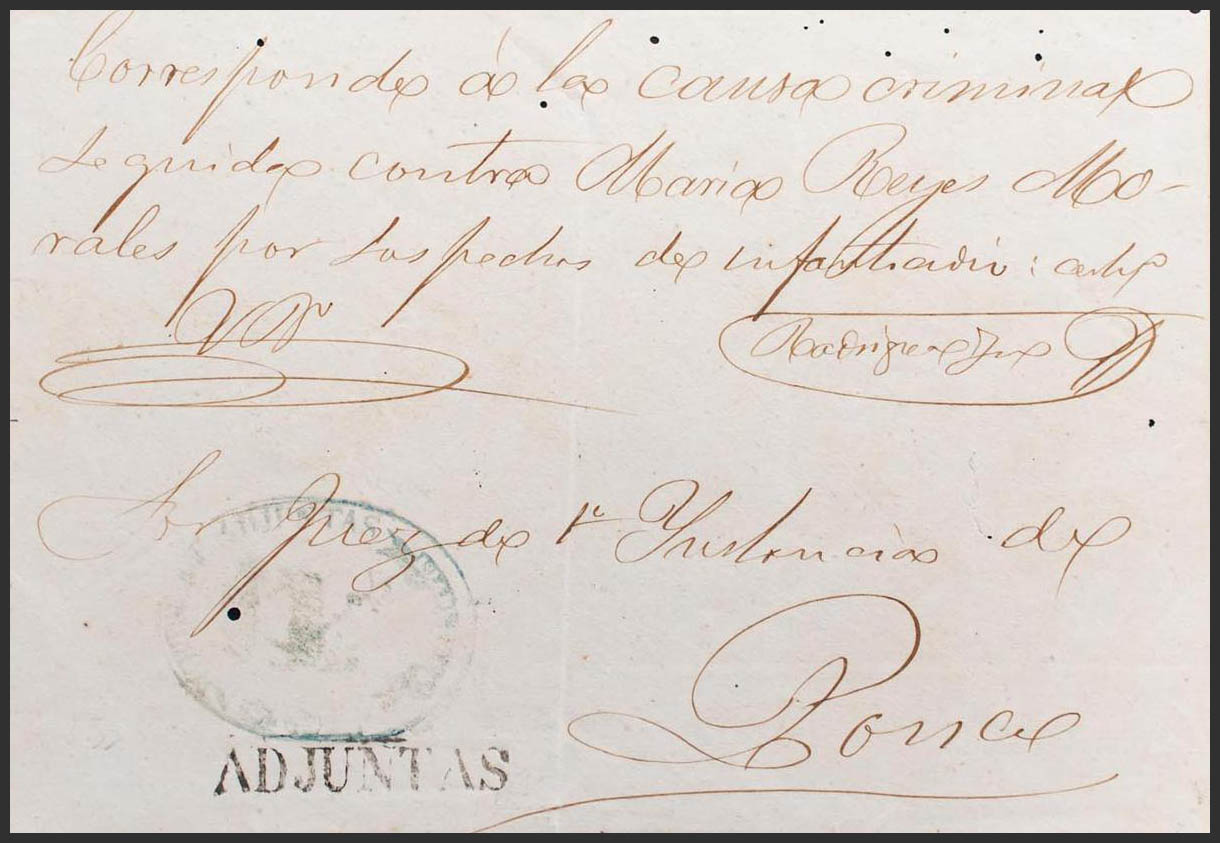 Corresponde á la causa criminal
seguida contra Maria Reyes Mo-
rales por sospechas de infanticidio:
VºBº
Rodriguez
Sor Juez de 1ª Instancia de
ADJUNTAS
Ponce
ADJUNTAS